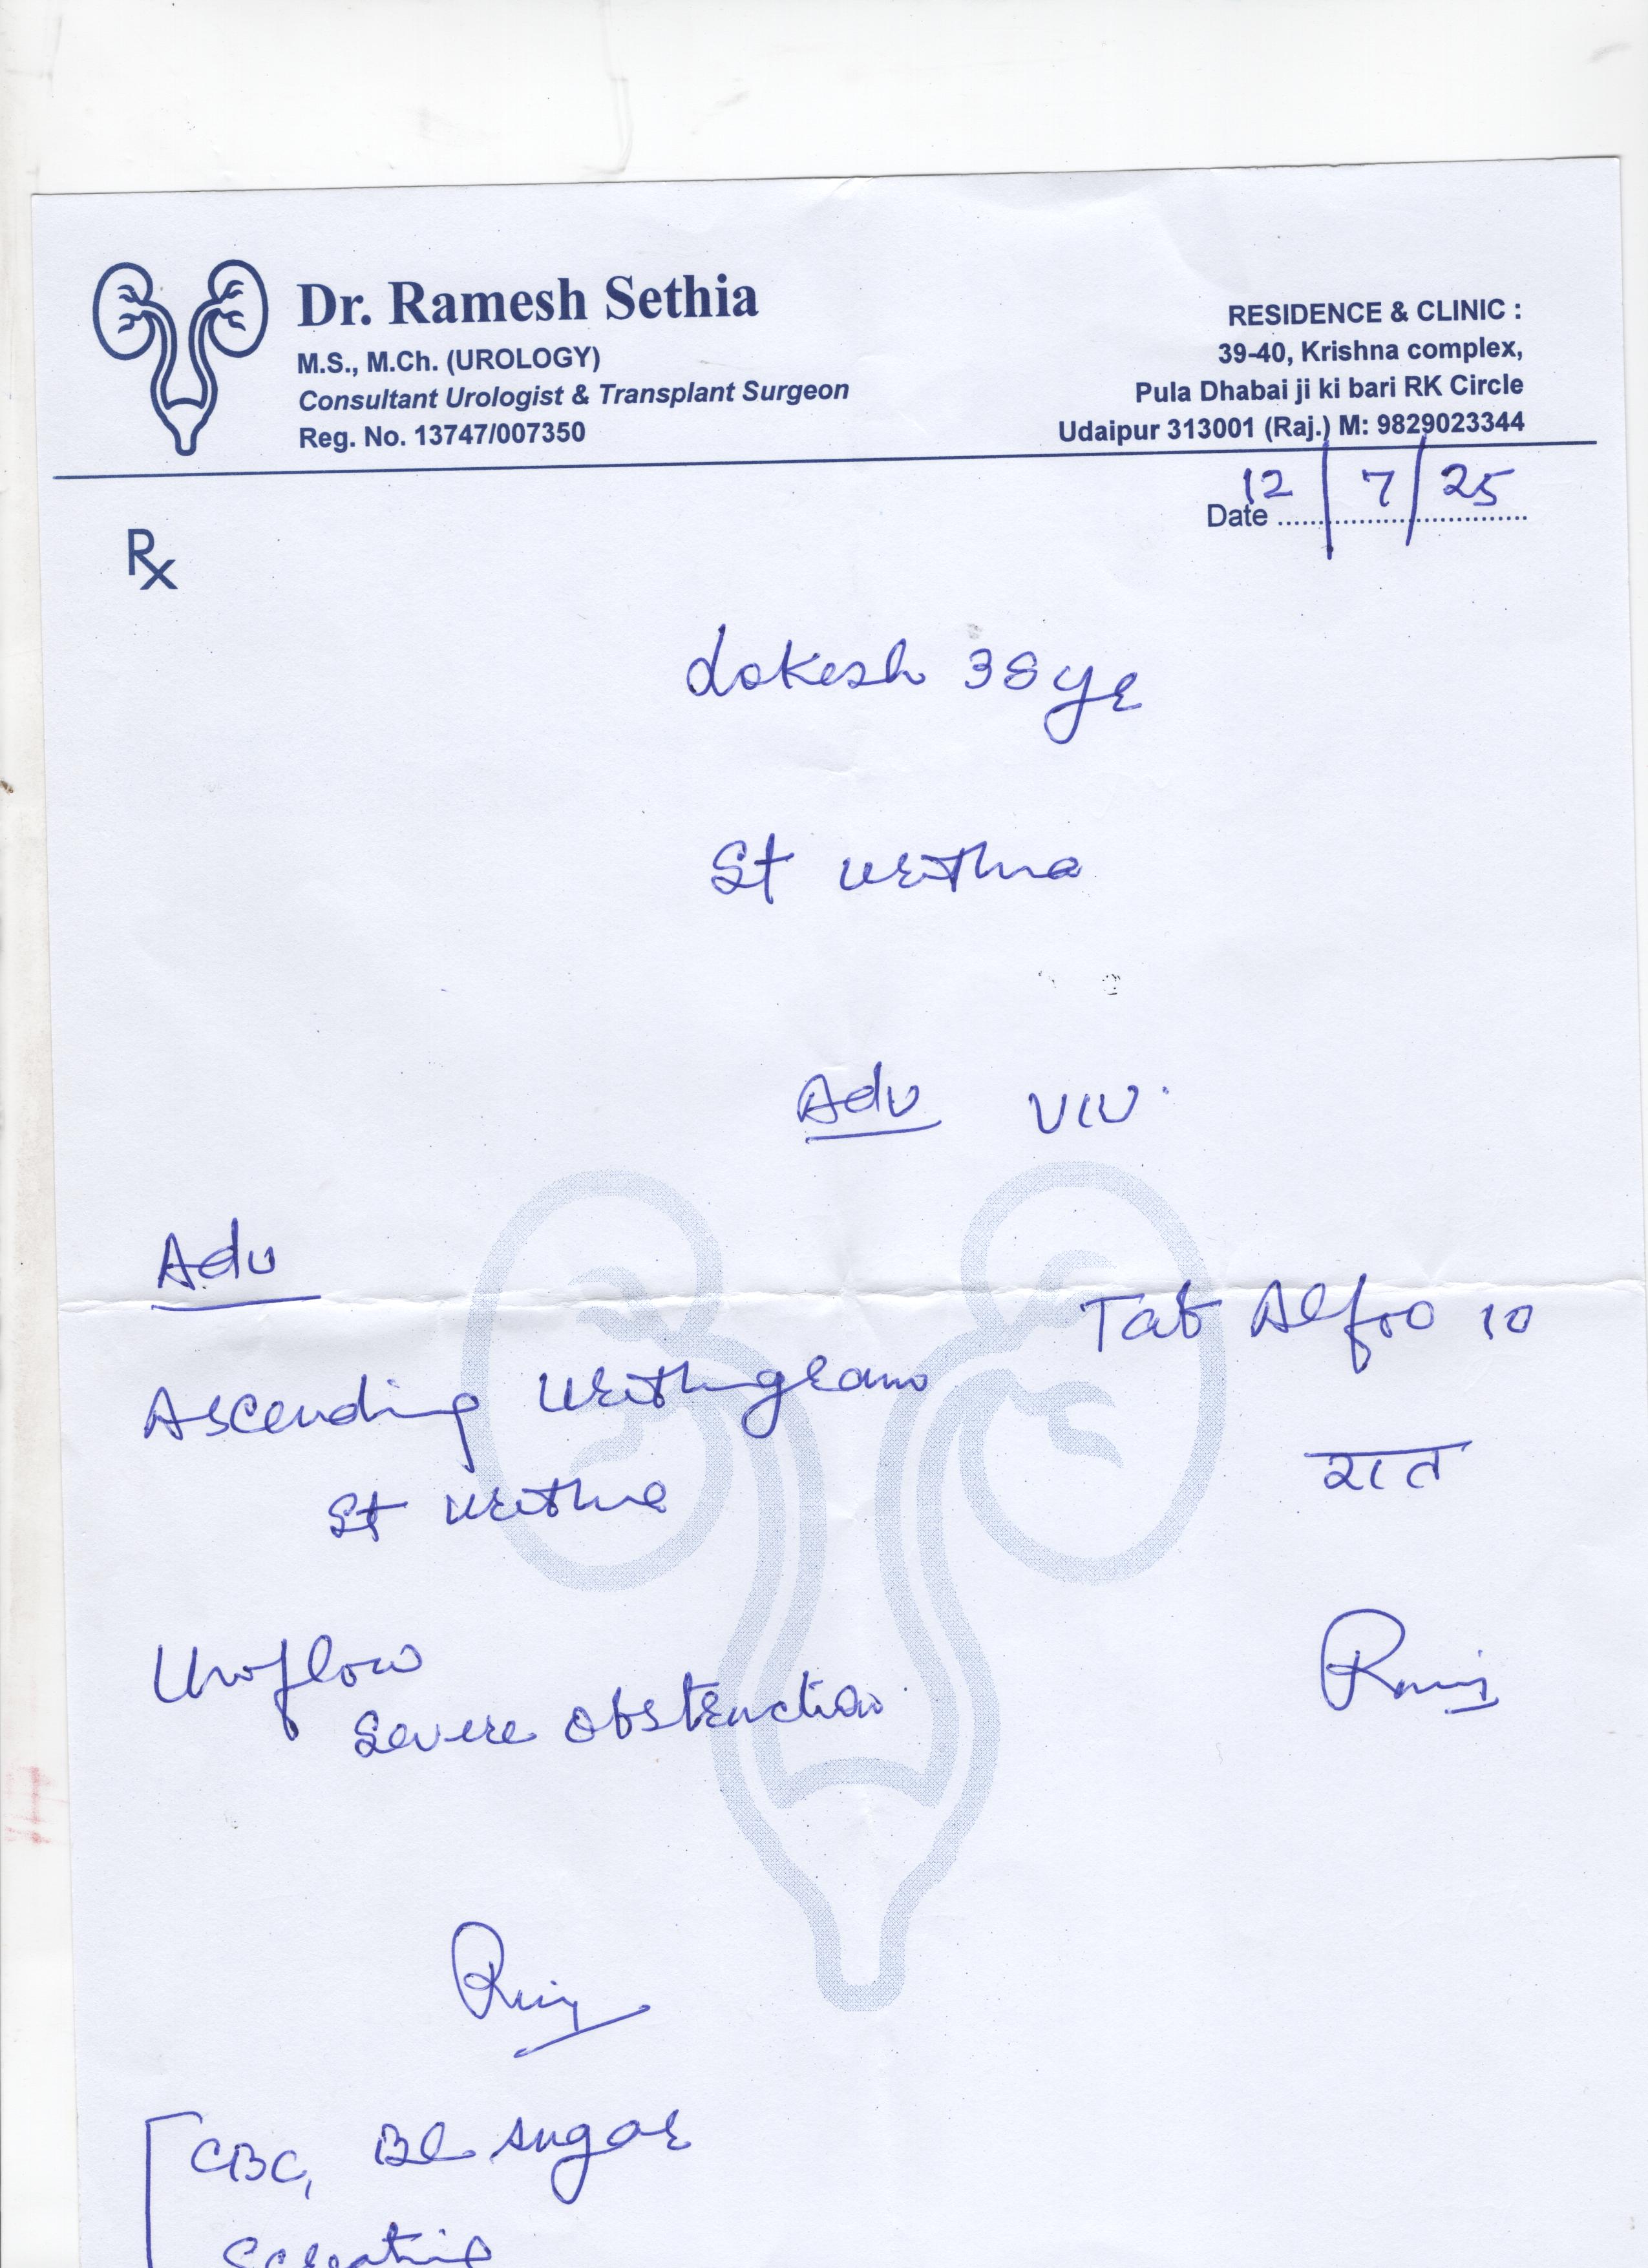 Dr. Ramesh Sethia
M.S., M.Ch. (UROLOGY)
Consultant Urologist & Transplant Surgeon
Reg. No. 13747/007350
RESIDENCE & CLINIC :
39-40, Krishna complex,
Pula Dhabai ji ki bari RK Circle
Udaipur 313001 (Raj.) M: 9829023344
Date 12/7/25
Rx
Lokesh 38 yr
St urethra
Adv VIU
Adv
Tab Alfoo 10
रात
Ascending Urethrogram
St urethra
Uroflow
Severe Obstruction
CBC, Bl sugar